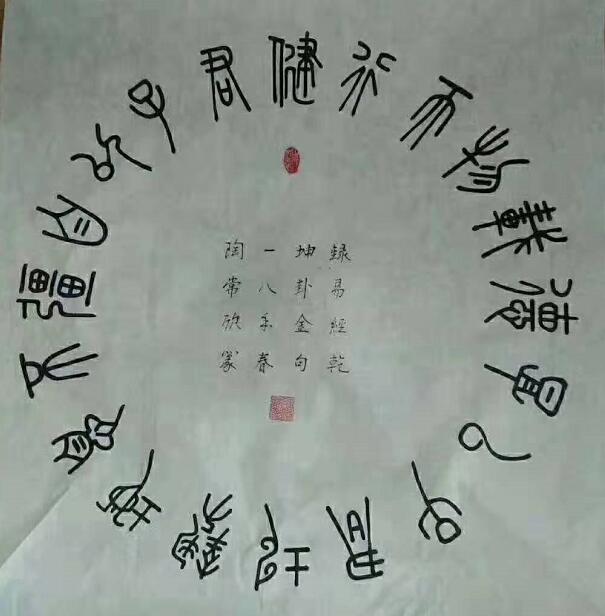 天行健君子以自彊不息地勢坤君子以厚德載物
録易經乾
坤卦金句
一八年春
陶常欣篆